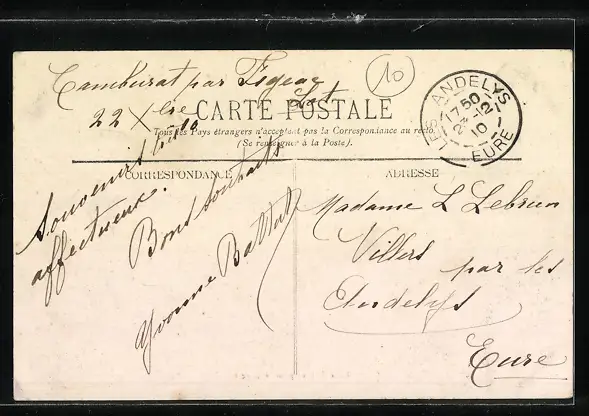 Camburat par Figeac
Lot
22 Xbre 10
CARTE POSTALE
Tous les Pays étrangers n'acceptent pas la Correspondance au recto
(Se renseigner à la Poste).
CORRESPONDANCE
Souvenirs très
affectueux.
Bons souhaits
Yvonne Battut
ADRESSE
Madame L Lebrun
Villers
par les
Andelys
Eure
10
LES ANDELYS
17 50
12
10
EURE